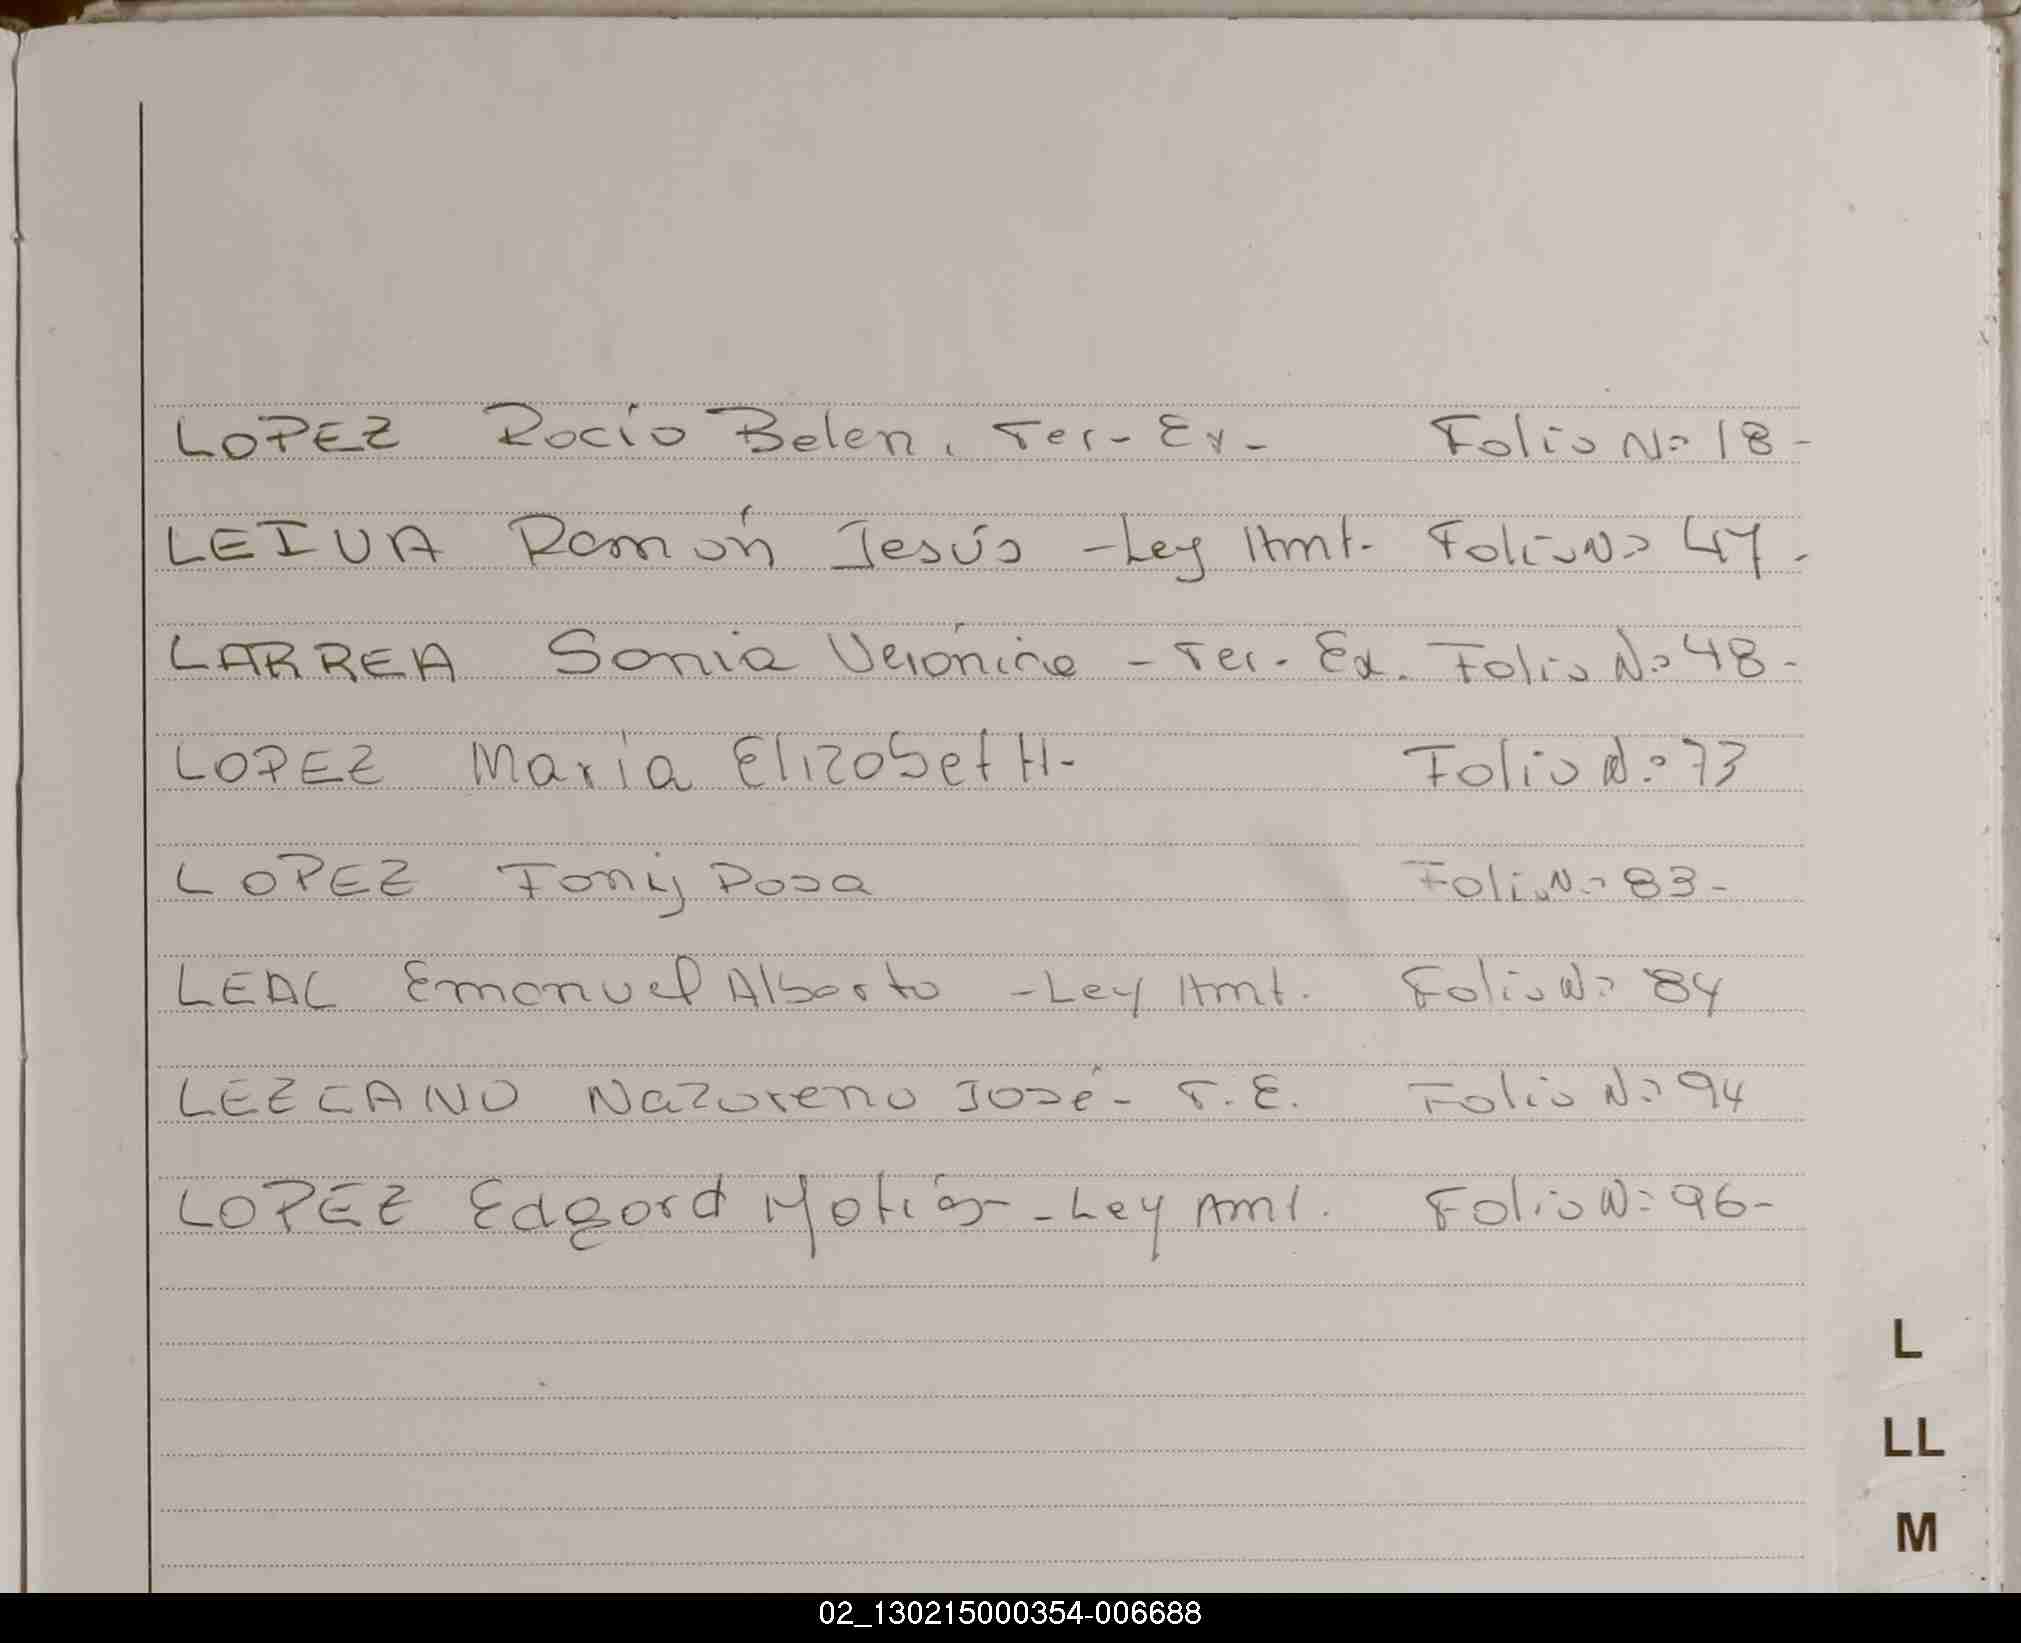 LOPEZ Rocío Belen. Ter- Ex- Folio Nº 18-
LEIVA Ramón Jesús -Ley Hmt. Folio Nº 47.
LARREA Sonia Verónica - Ter- Ex. Folio Nº 48-
LOPEZ María ElizabetH- Folio Nº 73
LOPEZ Rosa Folio Nº 83-
LEAL Emanuel Alberto -Ley Hmt. Folio Nº 84
LEZCANO Nazareno José- T.E. Folio Nº 94
LOPEZ Edgard Matías - Ley Amt. Folio Nº 96-
L
LL
M
02_130215000354-006688